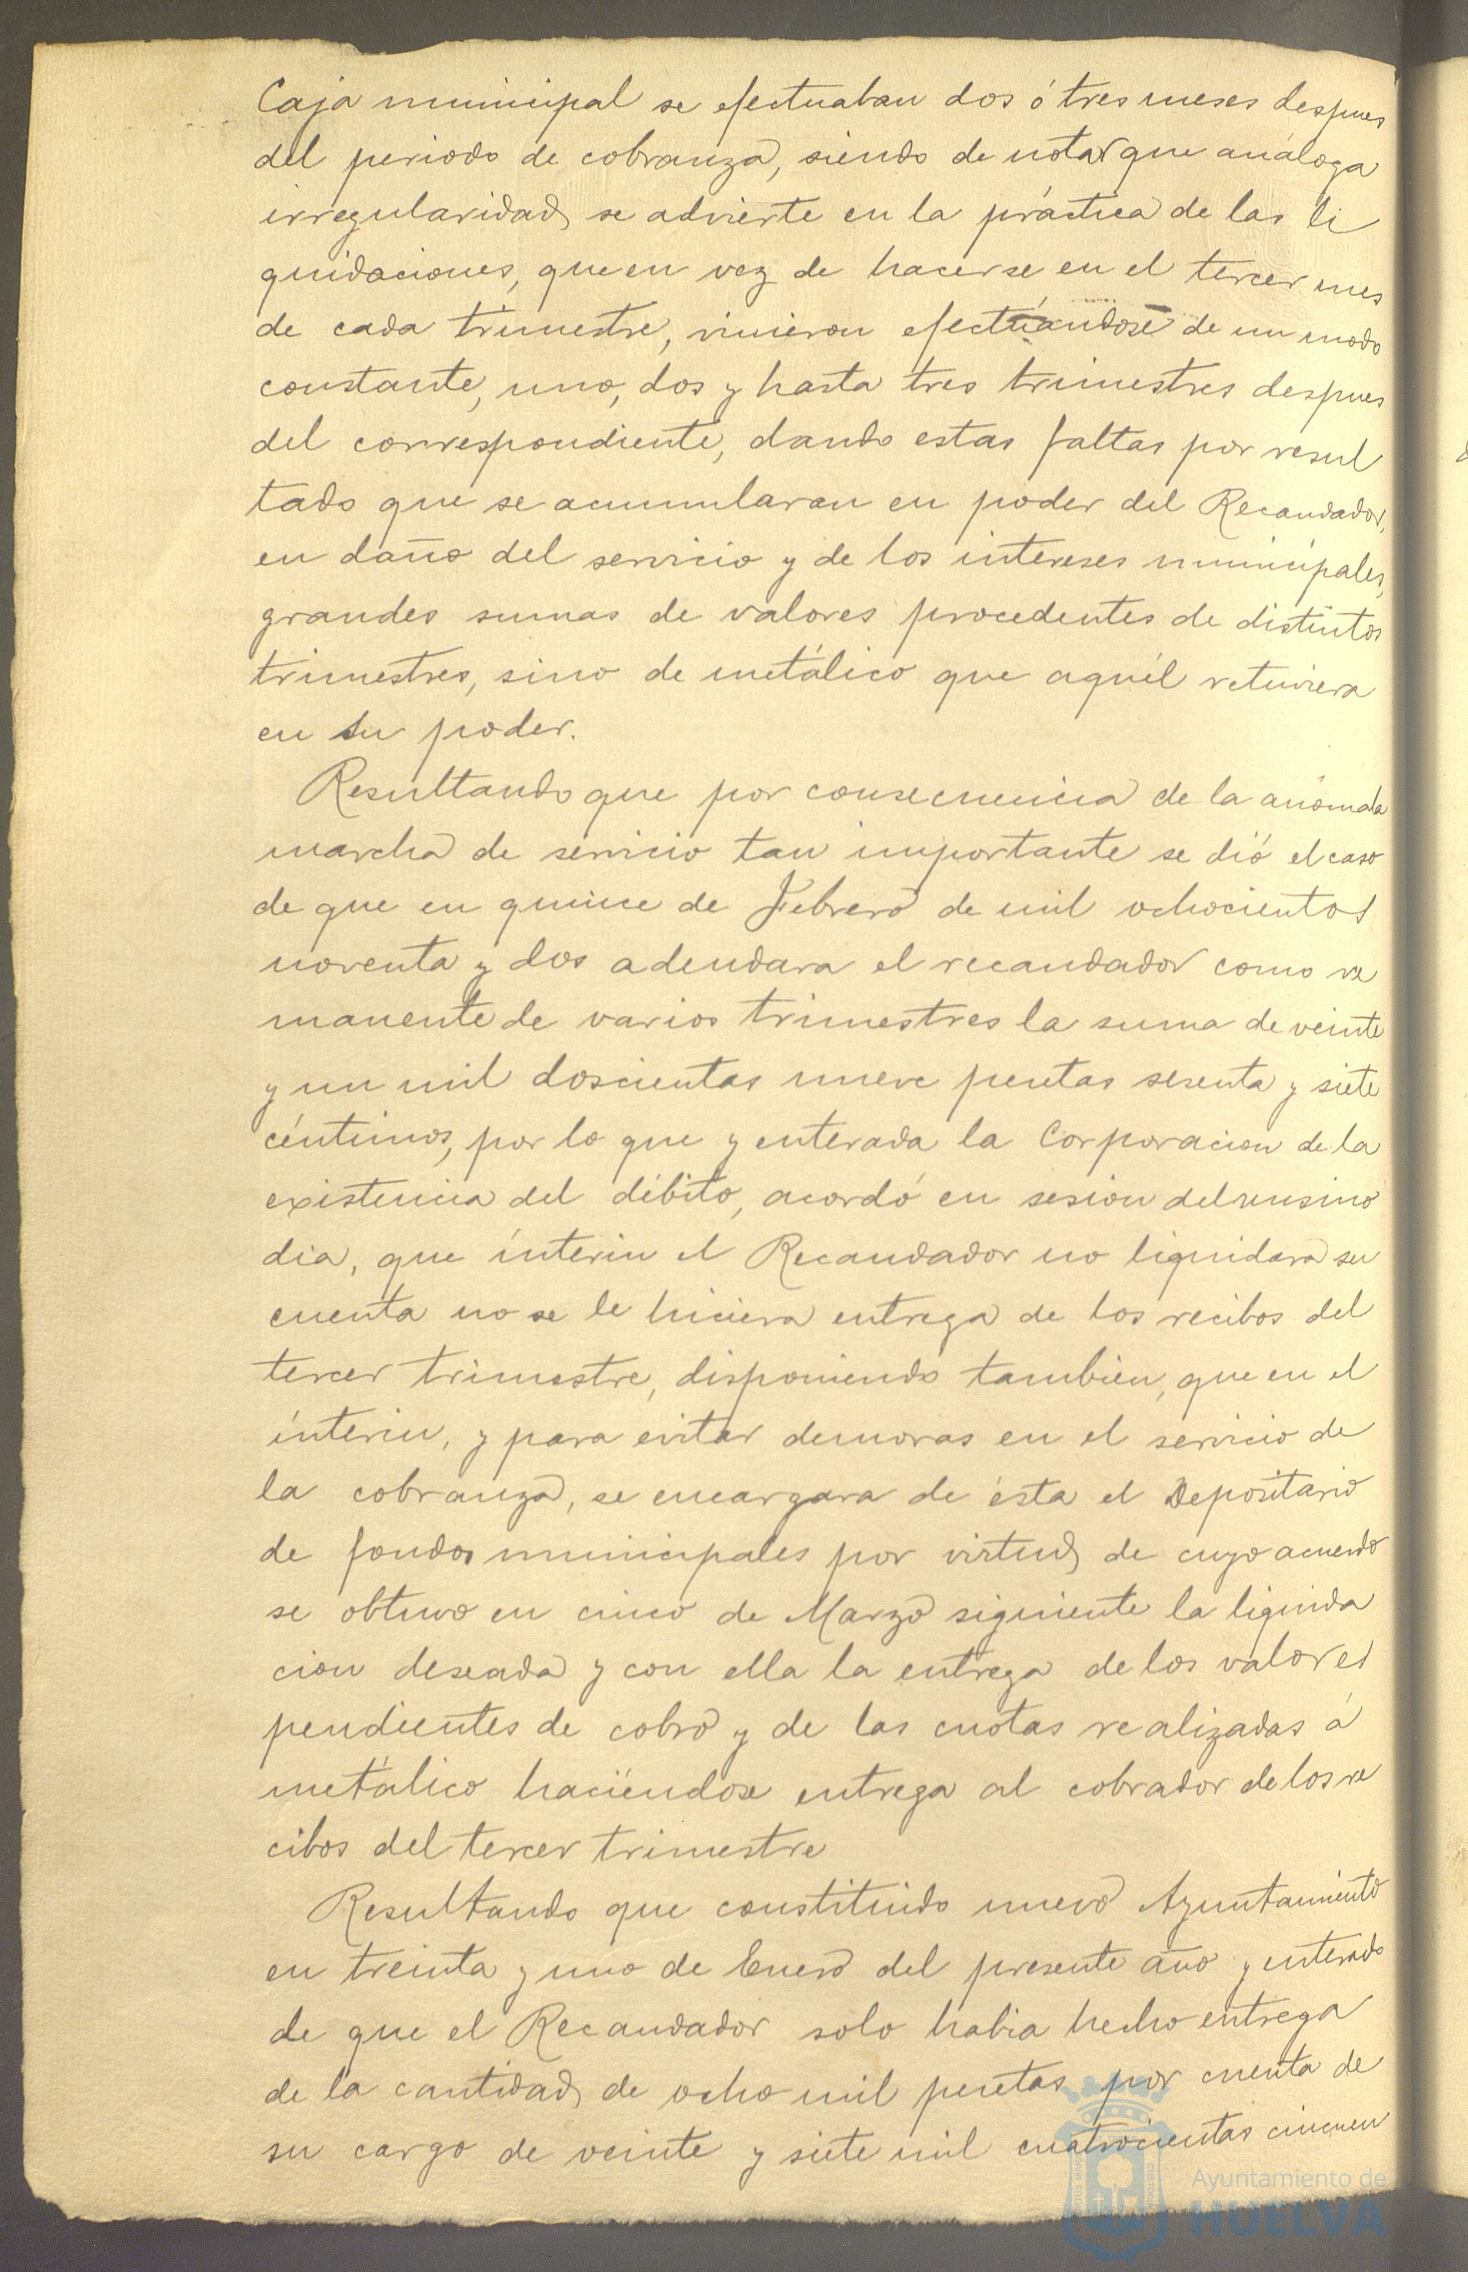 Caja municipal se efectuaban dos ó tres meses despues
del periodo de cobranza, siendo de notar que análoga
irregularidad, se advierte en la práctica de las li
quidaciones, que en vez de hacerse en el tercer mes
de cada trimestre, vinieron efectuándose de un modo
constante, uno, dos y hasta tres trimestres despues
del correspondiente, dando estas faltas por resul
tado que se acumularan en poder del Recaudador,
en daño del servicio y de los intereses municipales,
grandes sumas de valores procedentes de distintos
trimestres, sino de metálico que aquél retuviera
en su poder.
Resultando que por consecuencia de la anómala
marcha de servicio tan importante se dió el caso
de que en quince de Febrero de mil ochocientos
noventa y dos adeudara el recaudador como re
manente de varios trimestres la suma de veinte
y un mil doscientas nueve pesetas sesenta y siete
céntimos, por lo que y enterada la Corporacion de la
existencia del débito, acordó en sesion del mismo
dia, que ínterin el Recaudador no liquidara su
cuenta no se le hiciera entrega de los recibos del
tercer trimestre, disponiendo tambien, que en el
ínterin, y para evitar demoras en el servicio de
la cobranza, se encargara de ésta el Depositario
de fondos municipales por virtud, de cuyo acuerdo
se obtuvo en cinco de Marzo siguiente la liquida
cion deseada y con ella la entrega de los valores
pendientes de cobro y de las cuotas realizadas á
metálico haciéndose entrega al cobrador de los re
cibos del tercer trimestre
Resultando que constituido nuevo Ayuntamiento
en treinta y uno de Enero del presente año y enterado
de que el Recaudador solo habia hecho entrega
de la cantidad, de ocho mil pesetas por cuenta de
su cargo de veinte y siete mil cuatrocientas cincuen
Ayuntamiento de
HUELVA